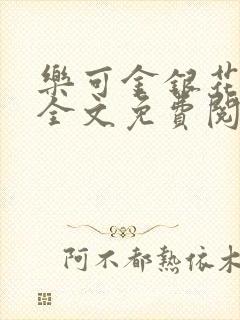 樂可金銀花
全文免費閱
阿不都熱依木